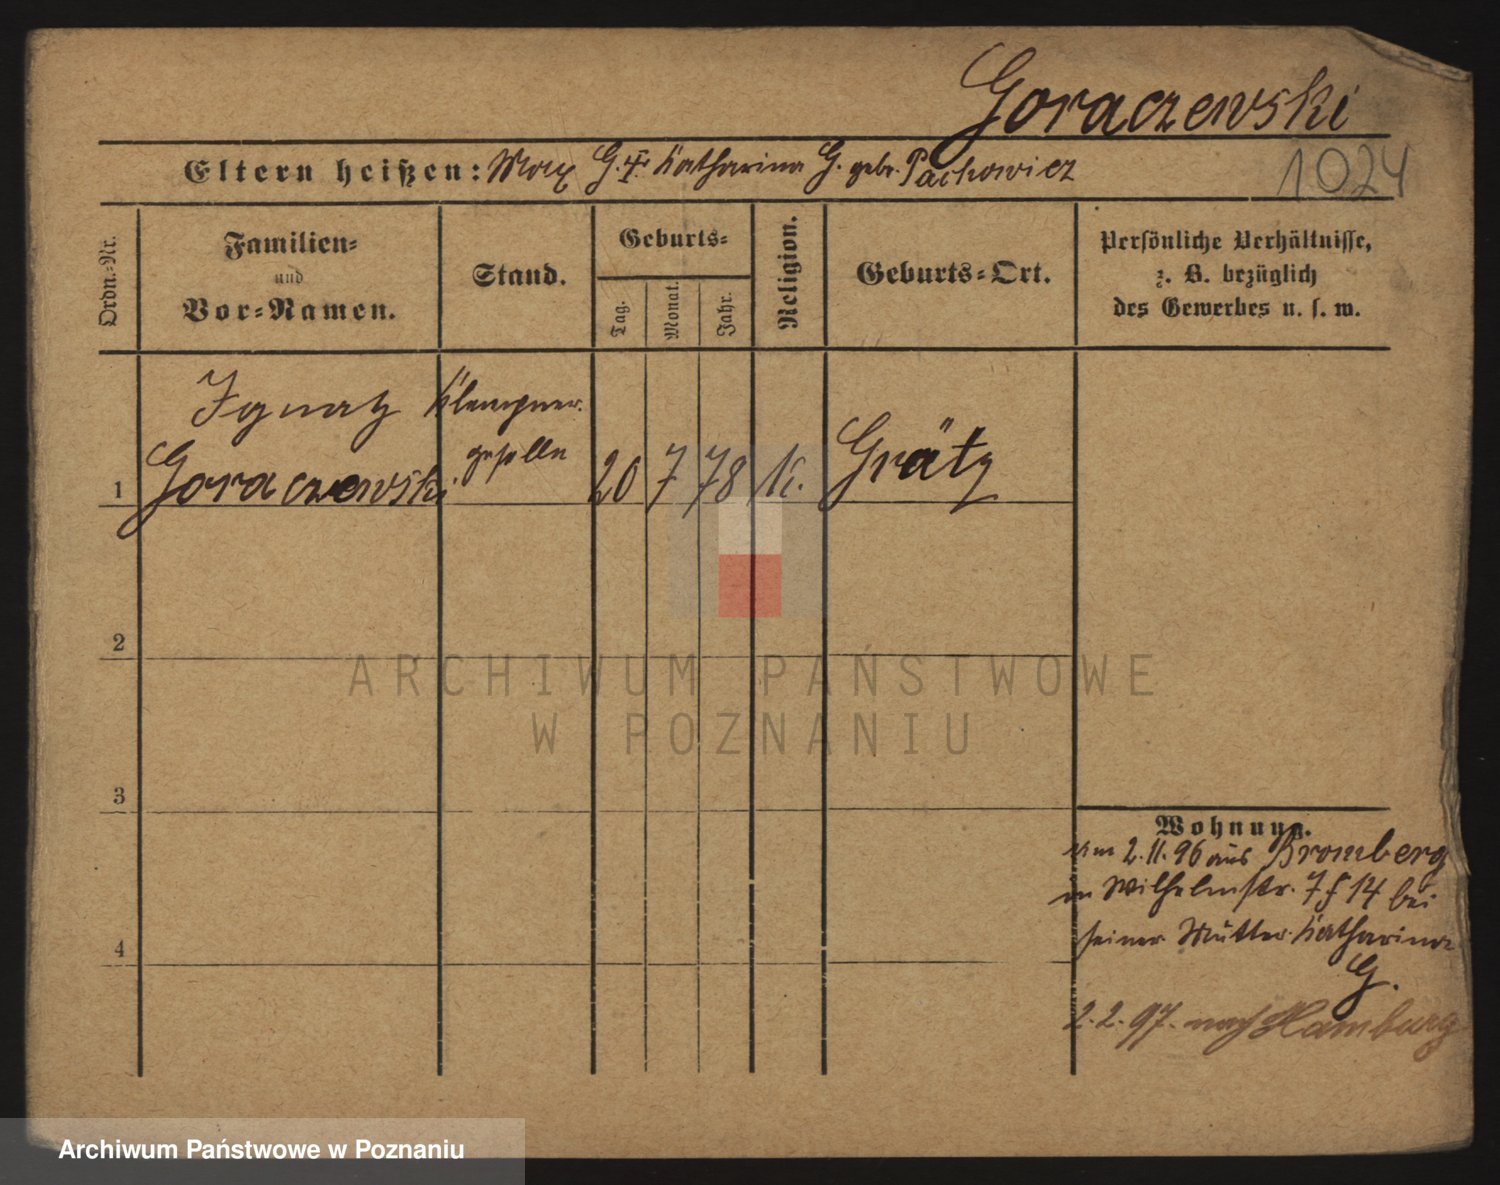 Goraczewski
1024
Eltern heißen: Max G. u. Katharina G. gebr. Pachowicz
Ordn.-Nr.
Familien-
und
Vor-Namen.
Stand.
Geburts-
Tag.
Monat.
Jahr.
Religion.
Geburts-Ort.
Persönliche Verhältnisse,
z. B. bezüglich
des Gewerbes u. s. w.
Ignatz
Klempner-
geselle
1 Goraczewski 20 7 78 K. Grätz
2
3
4
Wohnung.
vom 2.11.96 aus Bromberg
in Wilhelmstr. 7 14 bei
seiner Mutter Katharina
G.
2.2.97. nach Hamburg
ARCHIWUM PAŃSTWOWE
W POZNANIU
Archiwum Państwowe w Poznaniu